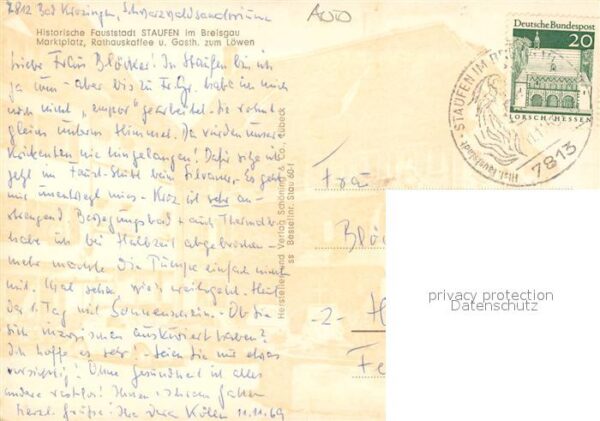 7812 Bad Krozingen, Schwarzwaldsanatorium
Historische Fauststadt STAUFEN im Breisgau
Marktplatz, Rathauskaffee u. Gasth. zum Löwen
Liebe Frau Blöcker! In Staufen bin ich
ja nun - aber bis zu habe ich mich
noch nicht "empor" gearbeitet. Die wohnt
gleins unterm Himmel. Da würden unsere
nie hingelangen! Dafür sitze ich
jetzt im Faust-Stübe beim Silvaner. Es geht
mir Kroz ist sehr an-
strengend. Bewegungsbad + auch Thermalb.
habe ich bei Halbzeit abgebrochen -
mehr machte die Pumpe einfach nicht
mit. Mal sehen, wie's weitergeht. Heut
der 1. Tag mit Sonnenschein. - Ob Sie
sich inzwischen auskuriert haben?
Ich hoffe es sehr! - Seien Sie nur etwas
vorsichtig! Ohne Gesundheit ist alles
andere wertlos! Ihnen + Ihrem Gatten
herzl. Grüße. Ihre Vera Köhler 11.11.69
Hersteller und Verlag Schöning & Co., Lübeck
ss Bestellnr. Stau 60
Deutsche Bundespost
20
LORSCH/HESSEN
STAUFEN IM BREI
Hist. Fauststadt
7813
Frau
Blöc
-2- H
Fe
privacy protection
Datenschutz